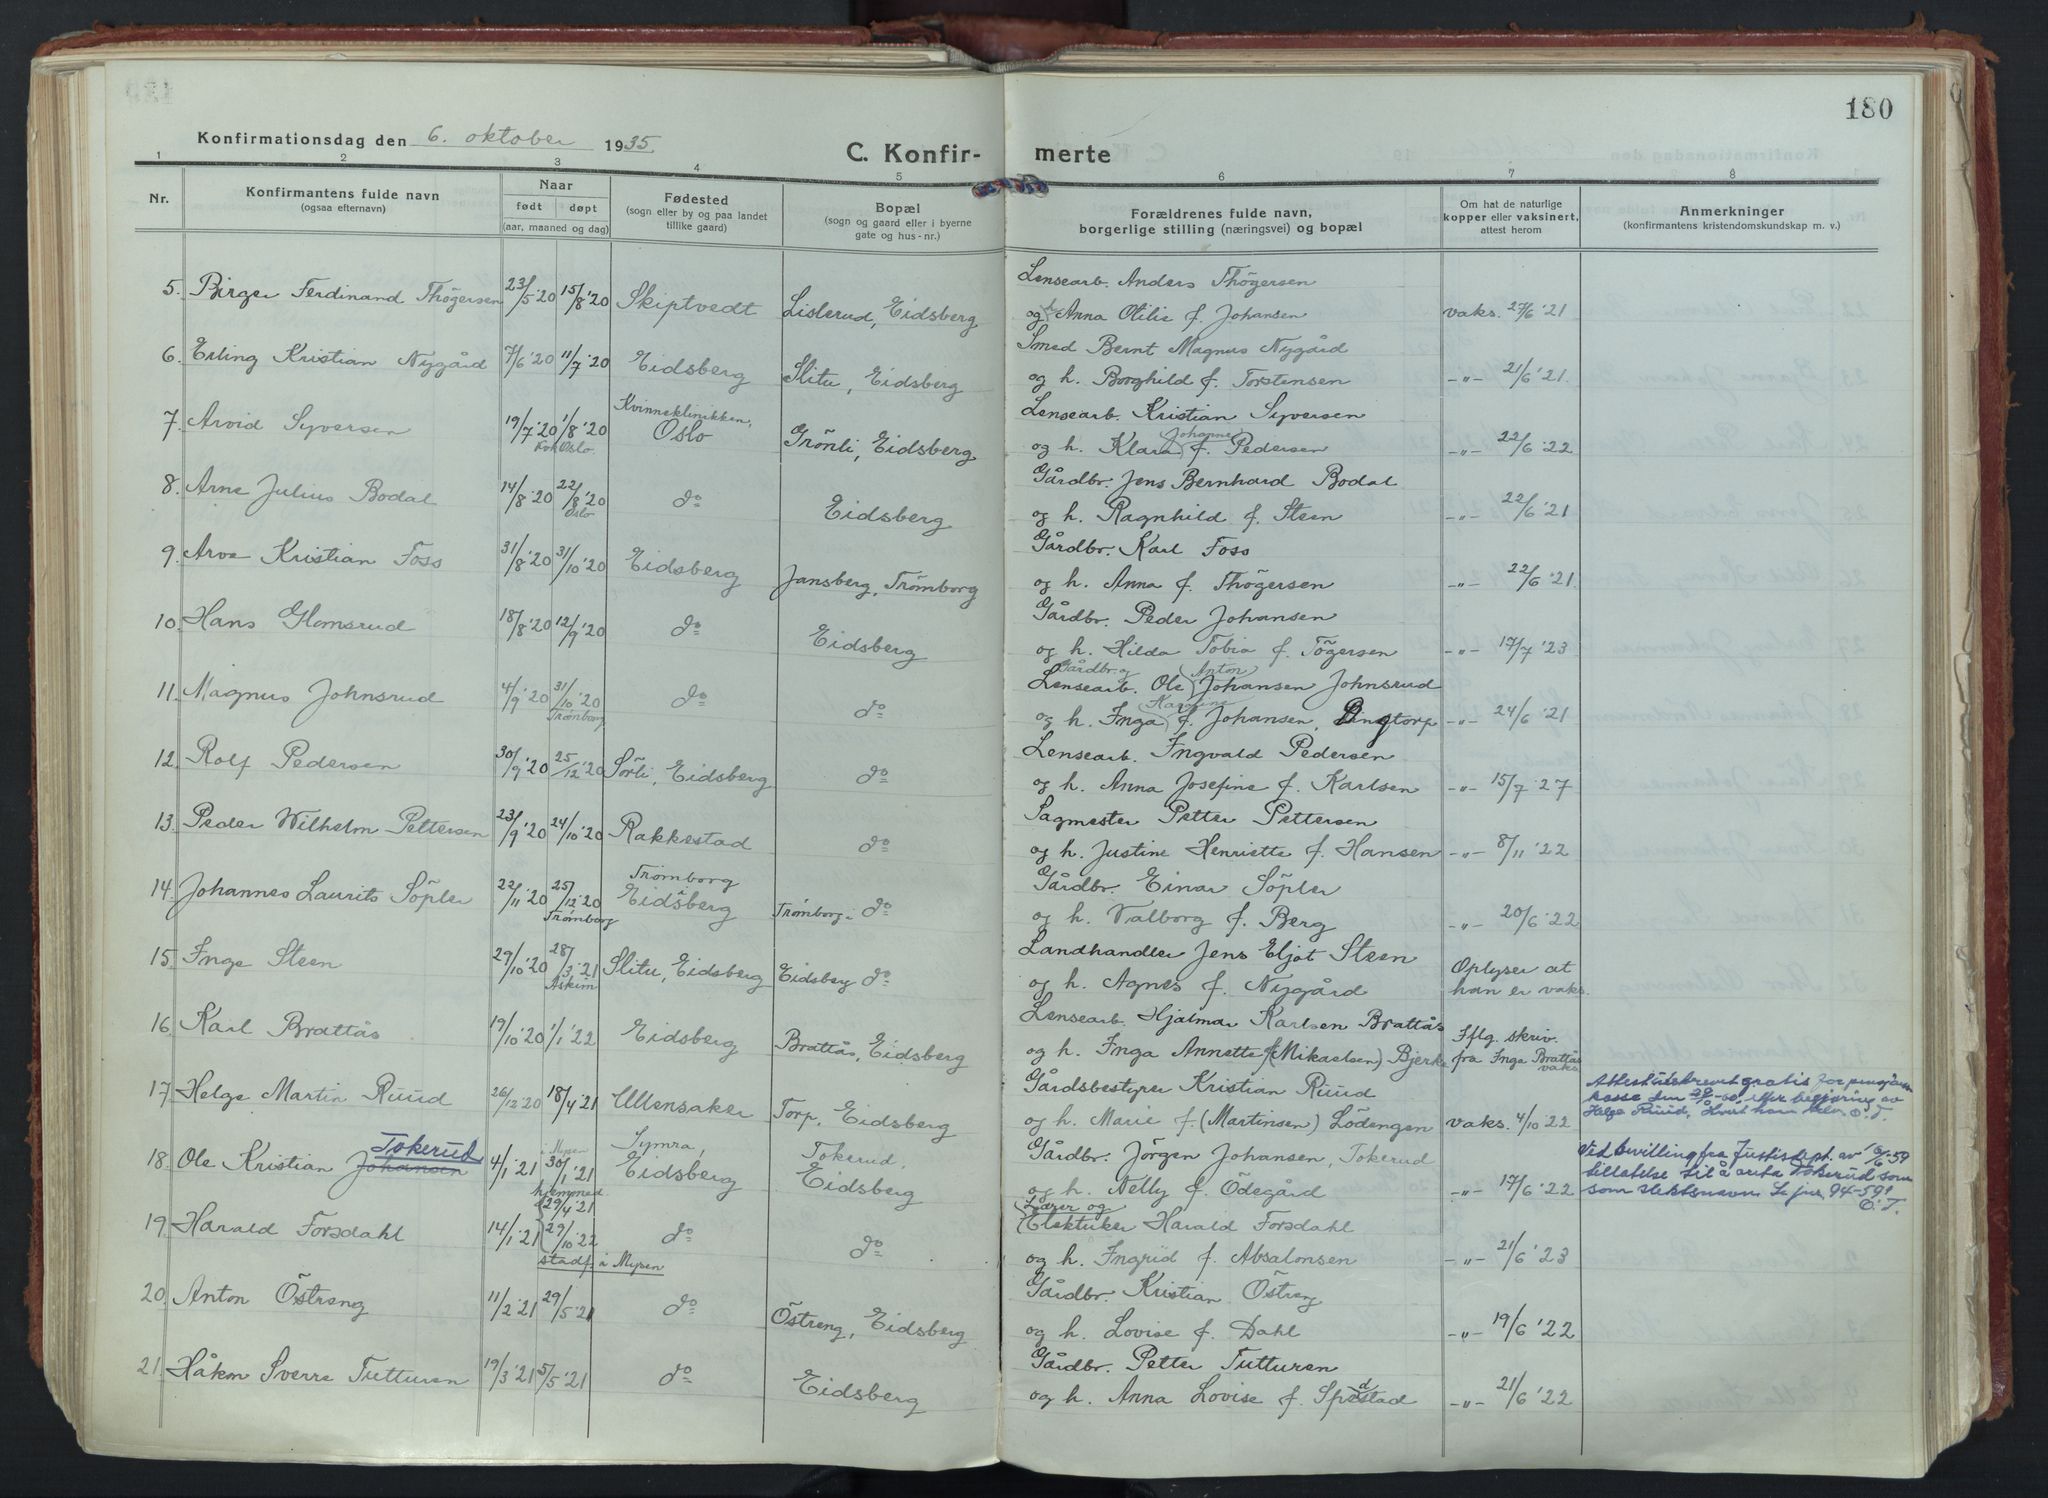 180
Konfirmationsdag den 6. oktober 1935.
C. Konfir- merte
1 2 3 4 5 6 7 8
Nr.
Konfirmantens fulde navn
(ogsaa efternavn)
Naar
født døpt
(aar, maaned og dag)
Fødested
(sogn eller by og paa landet
tillike gaard)
Bopæl
(sogn og gaard eller i byerne
gate og hus-nr.)
Forældrenes fulde navn,
borgerlige stilling (næringsvei) og bopæl
Om hat de naturlige
kopper eller vaksinert,
attest herom
Anmerkninger
(konfirmantens kristendomskundskap m. v.)
5. Birger Ferdinand Thögersen 23/5 '20 15/8 '20 Skiptvedt Lislerud, Eidsberg
Lensearb. Anders Thögersen
og h. Anna Otilie f. Johansen vaks. 27/6 '21
6. Erling Kristian Nygård 7/6 '20 11/7 '20 Eidsberg Slitu, Eidsberg
Smed Bernt Magnus Nygård
og h. Borghild f. Torstensen -"- 21/6 '21.
7. Arvid Syversen 19/7 '20 1/8 '20 Oslo. Kvinneklinikken, Oslo Grönli, Eidsberg
Lensearb. Kristian Syversen
og h. Klara Johanne f. Pedersen -"- 22/6 '22
8. Arne Julius Bodal 14/8 '20 22/8 '20 Oslo do Eidsberg
Gårdbr. Jens Bernhard Bodal
og h. Ragnhild f. Steen -"- 22/6 '21
9. Arve Kristian Foss 31/8 '20 31/10 '20 Eidsberg Jansberg, Trömborg
Gårdbr. Karl Foss
og h. Anna f. Thögersen -"- 22/6 '21.
10. Hans Glomsrud 18/8 '20 12/9 '20 do Eidsberg
Gårdbr. Peder Johansen
og h. Hilda Tobia f. Tögersen -"- 17/7 '23
11. Magnus Johnsrud 4/9 '20 31/10 '20 Trömborg do do
Gårdbr. og
Lensearb. Ole Anton Johansen Johnsrud
og h. Inga f. Johansen, -"- 24/6 '21
12. Rolf Pedersen 30/9 '20 25/12 '20 Sörli, Eidsberg do
Lensearb. Ingvald Pedersen
og h. Anna Josefine f. Karlsen -"- 15/7 '27
13. Peder Wilhelm Pettersen 23/9 '20 24/10 '20 Rakkestad do
Sagmester Petter Pettersen
og h. Justine Henriette f. Hansen -"- 8/11 '22
14. Johannes Laurits Söpler 22/11 '20 25/12 '20 Trömborg Trömborg i Eidsberg Trömborg i do
Gårdbr. Einar Söpler
og h. Valborg f. Berg -"- 20/6 '22
15. Inge Steen 29/10 '20 28/3 '21 Askim Slitu, Eidsberg Eidsberg do
Landhandler Jens Eljot Steen
og h. Agnes f. Nygård Oplyser at
han er vaks.
16. Karl Brattås 19/10 '20 1/1 '22 Eidsberg Brattås, Eidsberg
Lensearb. Hjalmar Karlsen Brattås
og h. Inga Annette f. (Mikaelsen) Bjerke Iflg. skriv.
fra Inga Brattås
vaks.
17. Helge Martin Ruud 26/12 '20 18/4 '21 Ullensaker Torp, Eidsberg
Gårdsbestyrer Kristian Ruud
og h. Marie f. (Martinsen) Lödengen vaks. 4/10 '22
Attest utskrevet gratis for pensjons
kasse den efter begjæring av
Helge Ruud, O. T.
18. Ole Kristian Johansen Tokerud 4/1 '21 i Mysen 30/1 '21 Symra, Eidsberg Tokerud, Eidsberg
Gårdbr. Jörgen Johansen, Tokerud
og h. Nelly f. Ödegård -"- 17/6 '22
Ved bevilling fra Justisdept. av 10/6-59
tillatelse til å anta Tokerud som
som slektsnavn. 94-591
O. T.
19. Harald Forsdahl 14/1 '21 hjemmed. 29/4 '21 29/10 '22 stadf. i Mysen do do
Lærer og
Elektriker Harald Forsdahl
og h. Ingrid f. Absalonsen -"- 21/6 '23
20. Anton Östreng 11/2 '21 29/5 '21 do Östreng, Eidsberg
Gårdbr. Kristian Östreng
og h. Lovise f. Dahl -"- 19/6 '22
21. Håkon Sverre Tutturen 19/3 '21 5/5 '21 do Eidsberg
Gårdbr. Petter Tutturen
og h. Anna Lovise f. Spydstad -"- 21/6 '22